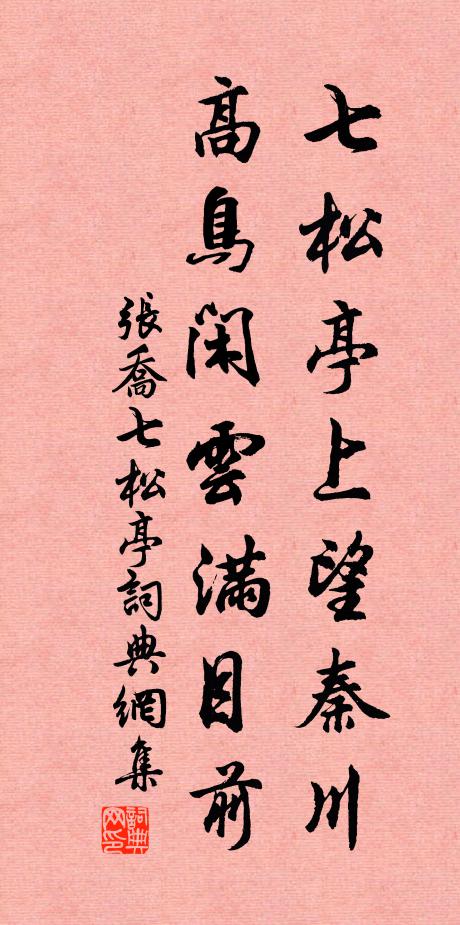 七松亭上望秦川
高鳥閑雲滿目前
張喬七松亭詞典網集
詞典网印